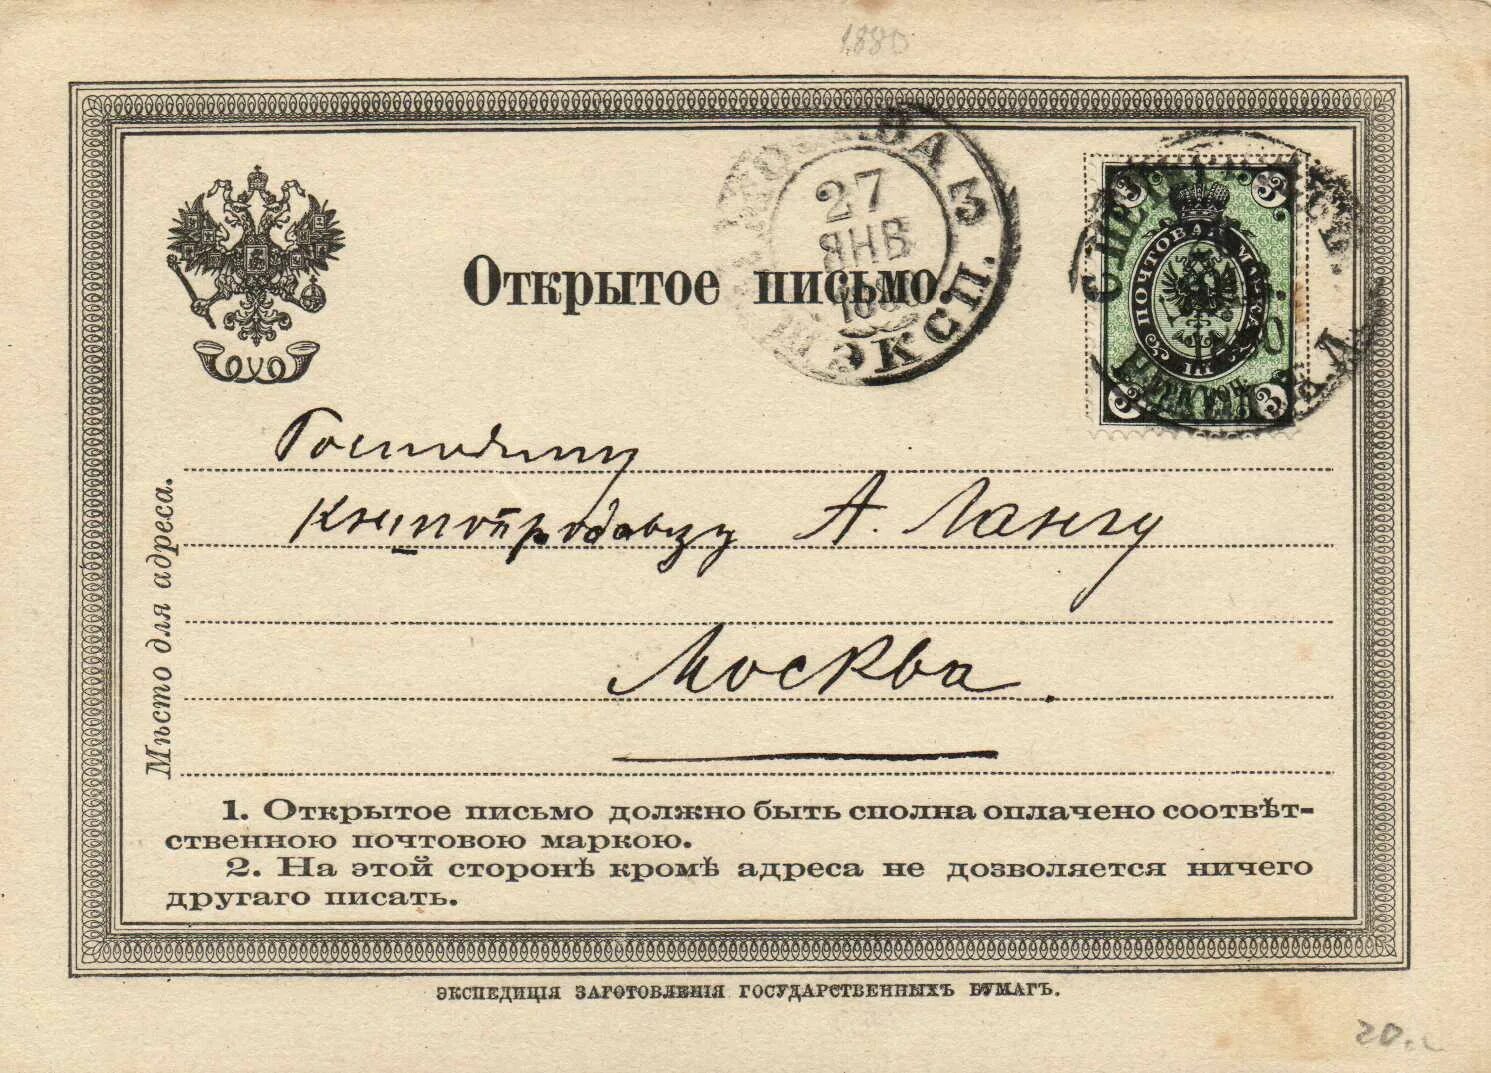 1880
МОСКВА 3 ЭКСП.
27
ЯНВ
3 3
ПОЧТОВАЯ МАРКА
3 3
Открытое письмо.
Господину
Книгопродавцу А. Лангу
Москва.
Мѣсто для адреса.
1. Открытое письмо должно быть сполна оплачено соотвѣт-
ственною почтовою маркою.
2. На этой сторонѣ кромѣ адреса не дозволяется ничего
другаго писать.
ЭКСПЕДИЦІЯ ЗАГОТОВЛЕНІЯ ГОСУДАРСТВЕННЫХЪ БУМАГЪ.